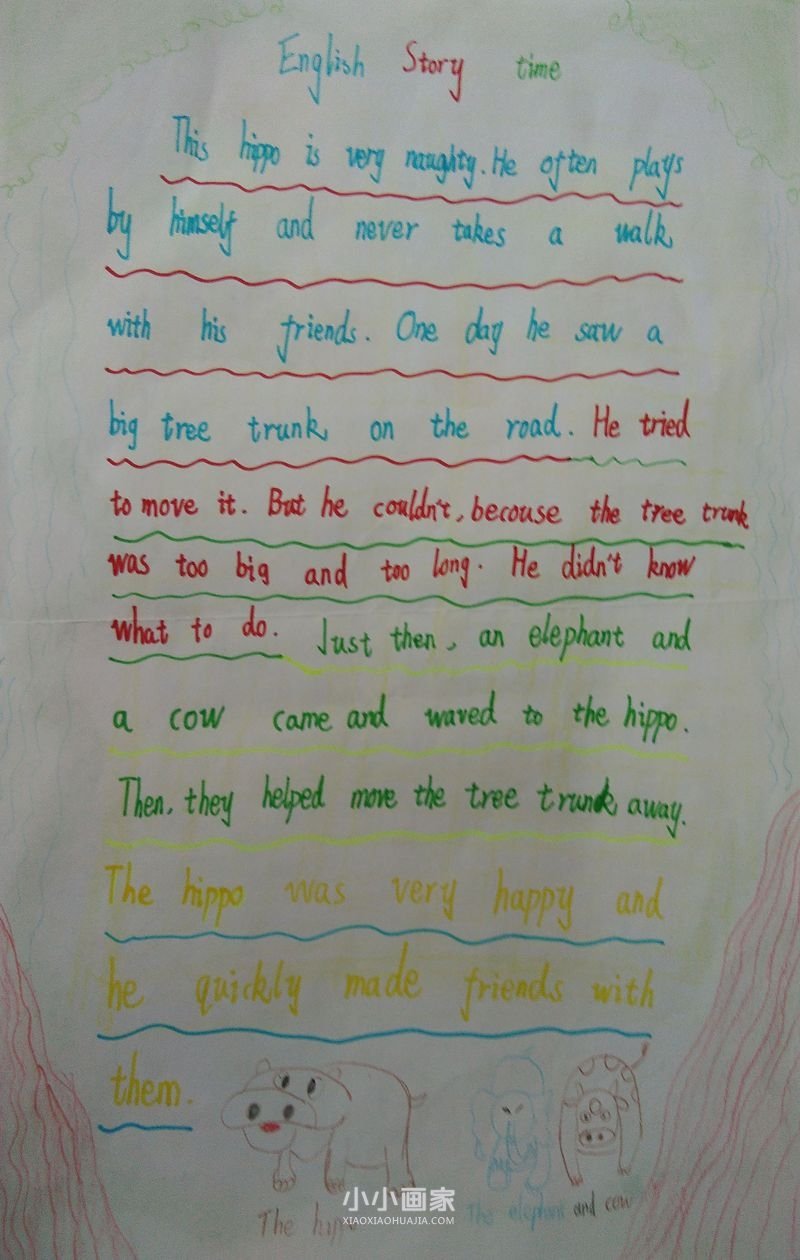 English Story time
This hippo is very naughty. He often plays
by himself and never takes a walk
with his friends. One day he saw a
big tree trunk on the road. He tried
to move it. But he couldn't, becouse the tree trunk
was too big and too long. He didn't know
what to do. Just then, an elephant and
a cow came and waved to the hippo.
Then, they helped move the tree trunk away.
The hippo was very happy and
he quickly made friends with
them.
The hippo
The elephant and cow
小小画家
XIAOXIAOHUAJIA.COM